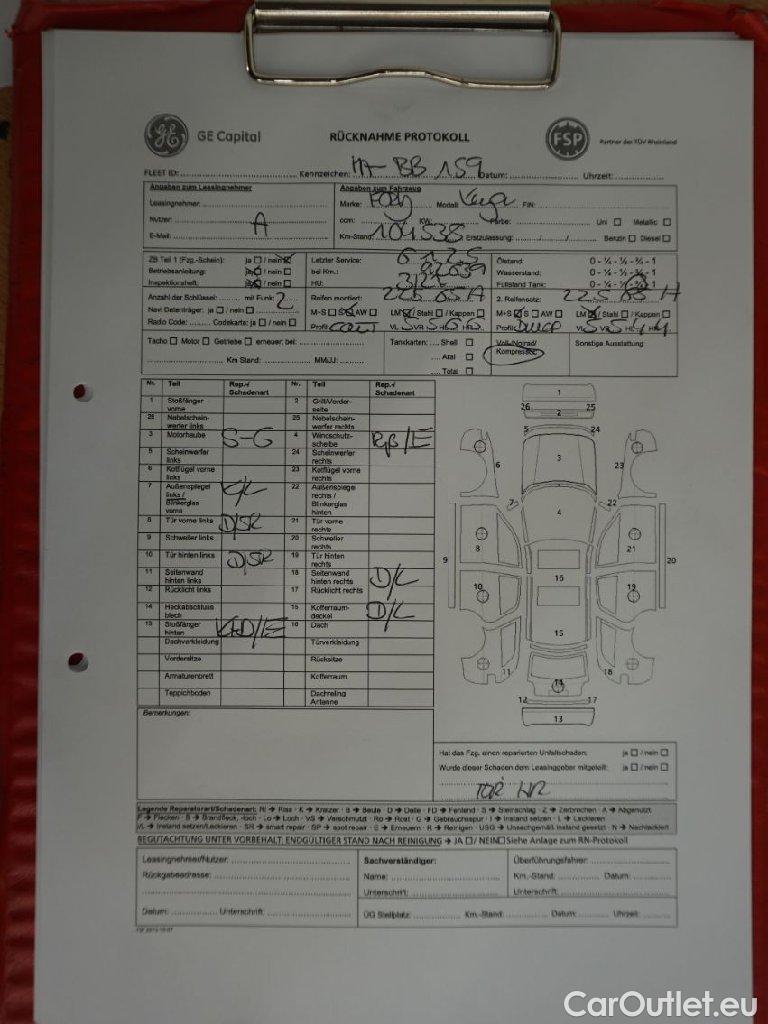 GE Capital RÜCKNAHME PROTOKOLL FSP Partner des TÜV Rheinland
FLEET ID: Kennzeichen: HH-BB 159 Datum: Uhrzeit:
Angaben zum Leasingnehmer
Leasingnehmer:
Nutzer: A
E-Mail:
Angaben zum Fahrzeug
Marke: Ford Modell: Kuga FIN:
ccm: KW: Farbe: Uni Metallic
Km-Stand: 104538 Erstzulassung: Benzin Diesel
ZB Teil 1 (Fzg.-Schein): ja / nein
Betriebsanleitung: ja / nein
Inspektionsheft: ja / nein
Letzter Service:
bei Km.:
HU:
Ölstand: 0 - ¼ - ½ - ¾ - 1
Wasserstand: 0 - ¼ - ½ - ¾ - 1
Füllstand Tank: 0 - ¼ - ½ - ¾ - 1
Anzahl der Schlüssel: mit Funk: 2
Navi Datenträger: ja / nein
Radio Code: Codekarte: ja / nein
Reifen montiert:
M-S SO AW LM / Stahl / Kappen
Profil
2. Reifensatz:
M-S SO AW LM / Stahl / Kappen
Profil
Tacho Motor Getriebe erneuer, bei:
Km Stand: MM/JJ:
Tankkarten: Shell
Aral
Total
Voll-/Notrad/
Kompressor
Sonstige Ausstattung:
Nr. Teil Rep./Schadenart Nr. Teil Rep./Schadenart
1 Stoßfänger vorne 2 Grill/Vorderseite
26 Nebelscheinwerfer links 25 Nebelscheinwerfer rechts
3 Motorhaube S-G 4 Windschutzscheibe
5 Scheinwerfer links 24 Scheinwerfer rechts
6 Kotflügel vorne links 23 Kotflügel vorne rechts
7 Außenspiegel links / Blinkerglas vorne K/L 22 Außenspiegel rechts / Blinkerglas hinten
8 Tür vorne links D/SR 21 Tür vorne rechts
9 Schweller links 20 Schweller rechts
10 Tür hinten links D/SR 19 Tür hinten rechts
11 Seitenwand hinten links 18 Seitenwand hinten rechts D/L
12 Rücklicht links 17 Rücklicht rechts
14 Heckabschlussblech 15 Kofferraumdeckel D/L
13 Stoßfänger hinten 16 Dach
Dachverkleidung Türverkleidung
Vordersitze Rücksitze
Armaturenbrett Kofferraum
Teppichboden Dachreling Antenne
Bemerkungen:
Hat das Fzg. einen reparierten Unfallschaden: ja / nein
Wurde dieser Schaden dem Leasinggeber mitgeteilt: ja / nein
Legende Reparaturart/Schadenart: RI → Riss - K → Kratzer - B → Beule - D → Delle - FD → Fehlend - S → Steinschlag - Z → Zerbrochen - A → Abgenutzt
F → Flecken - B → Brandfleck, -loch - Lo → Loch - VS → Verschmutzt - Ro → Rost - G → Gebrauchsspur - I → Instand setzen - L → Lackieren
I/L → Instand setzen/Lackieren - SR → smart repair - SP → spot repair - E → Erneuern - R → Reinigen - USG → Unsachgemäß instand gesetzt - N → Nachlackiert
BEGUTACHTUNG UNTER VORBEHALT, ENDGÜLTIGER STAND NACH REINIGUNG → JA / NEIN Siehe Anlage zum RN-Protokoll
Leasingnehmer/Nutzer:
Rückgabeadresse:
Datum: Unterschrift:
Sachverständiger:
Name:
Unterschrift:
Überführungsfahrer:
Km.-Stand: Datum:
Unterschrift:
ÜG Stellplatz: Km.-Stand: Datum: Uhrzeit:
CarOutlet.eu